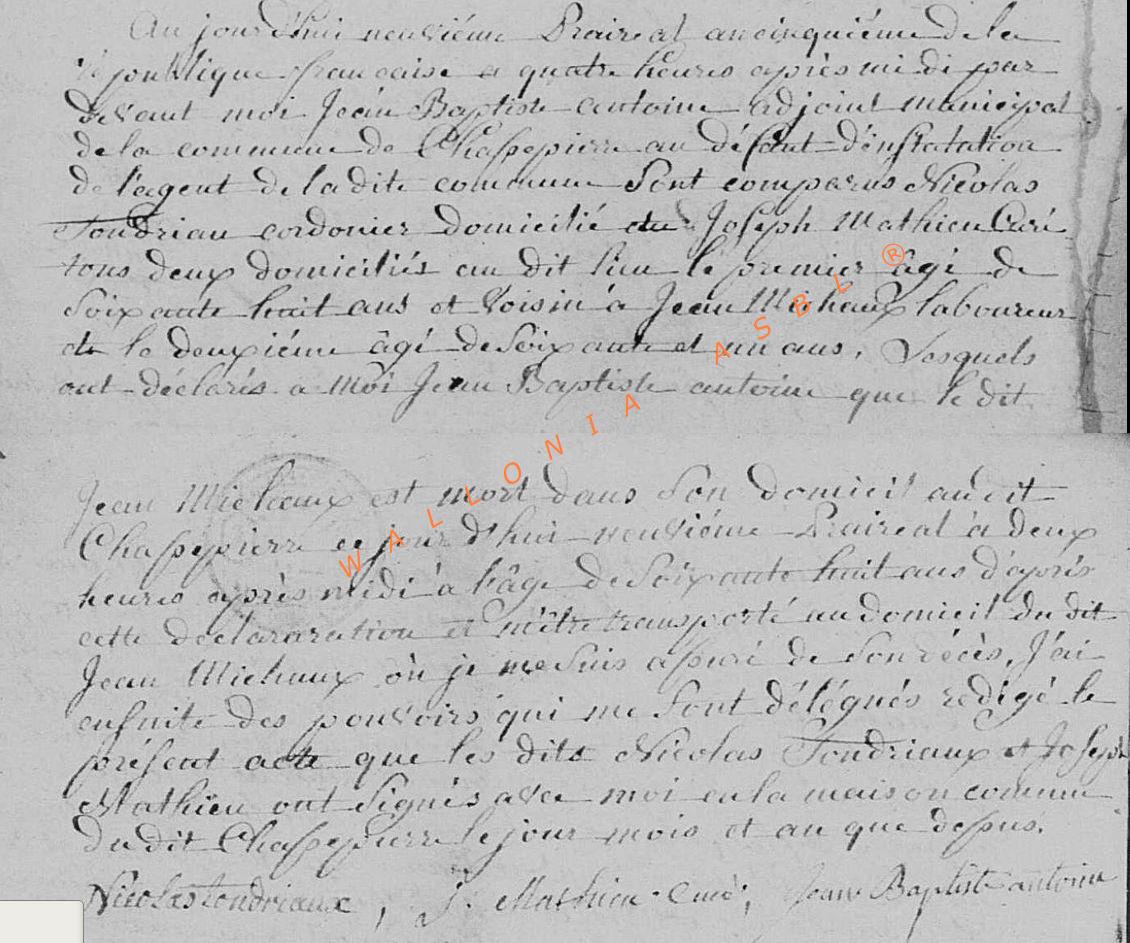 Au jourd'hui neuviéme Prairéal an cinquiéme de la
république française a quatre heures après midi par
devant moi Jean Baptiste antoine adjoint municipal
de la commune de Chassepierre au défaut d'instatation
de l'agent de la dite commune Sont comparus Nicolas
Tondriau cordonier domicilié et Joseph Mathieu Curé
tous deux domiciliés au dit lieu le premier âgé de
Soixante huit ans et voisin à Jean Michaux laboureur
et le deuxiéme âgé de Soixante et un ans, Lesquels
ont déclarés a Moi Jean Baptiste antoine que le dit
Jean Michaux est mort dans Son domicil audit
Chassepierre ce jour d'hui neuviéme Prairéal à deux
heures après midi à l'âge de Soixante huit ans d'après
cette déclararation et m'être transporté au domicil du dit
Jean Michaux où je me Suis assuré de Son décès, J'ai
ensuite des pouvoirs qui me Sont délégués rédigé le
présent acte que les dits Nicolas Tondriaux et Joseph
Mathieu ont Signés avec moi en la maison commune
du dit Chassepierre le jour mois et an que dessus.
Nicolas tondriaux, J. Mathieu Curé, Jean Baptiste antoine
WALLONIA ASBL ®